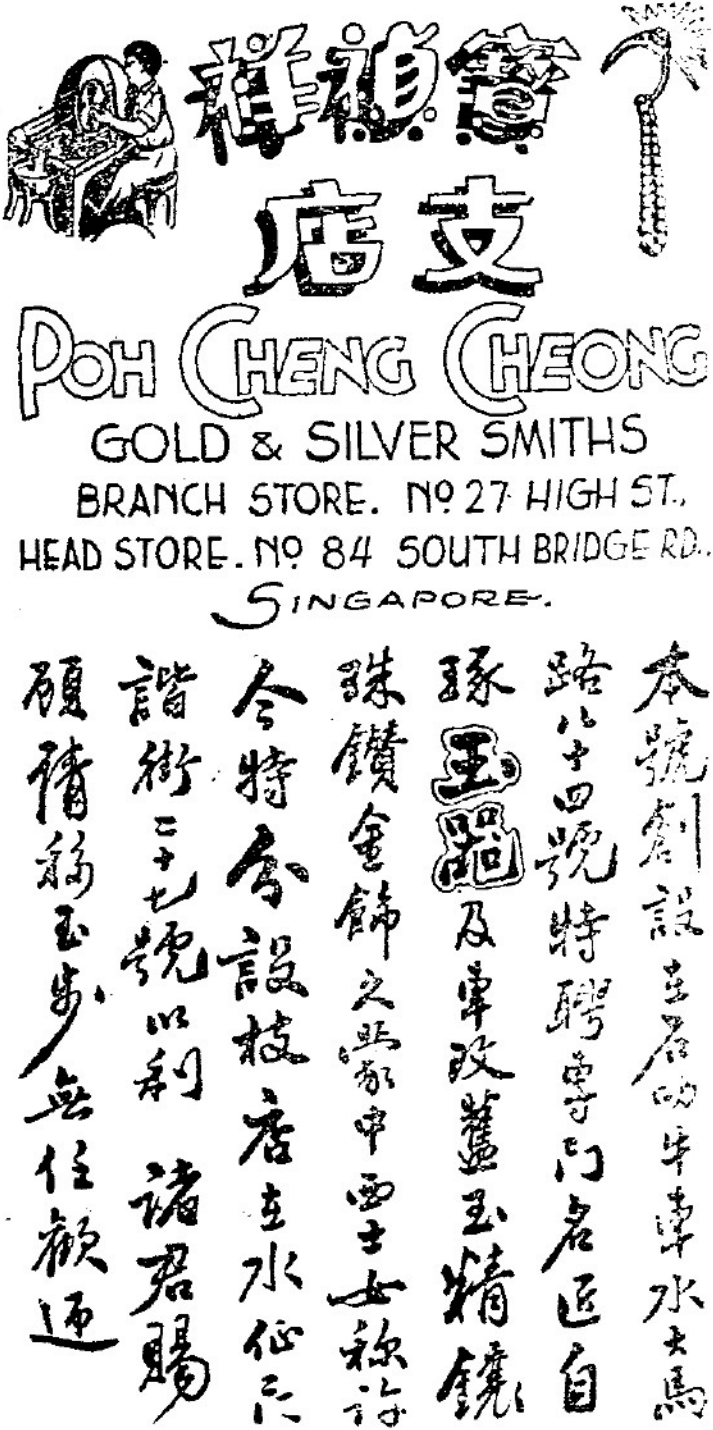 寶禎祥
支店
POH CHENG CHEONG
GOLD & SILVER SMITHS
BRANCH STORE. No 27 HIGH ST.,
HEAD STORE. No 84 SOUTH BRIDGE RD.,
SINGAPORE.
本號創設在石叻牛車水大馬
路八十四號特聘專門名匠自
琢玉器及車改舊玉精鑲
珠鑽金飾久蒙中西士女称許
今特分設枝店在水仙门
諧街二十七號以利 諸君賜
顧請移玉步無任歡迎